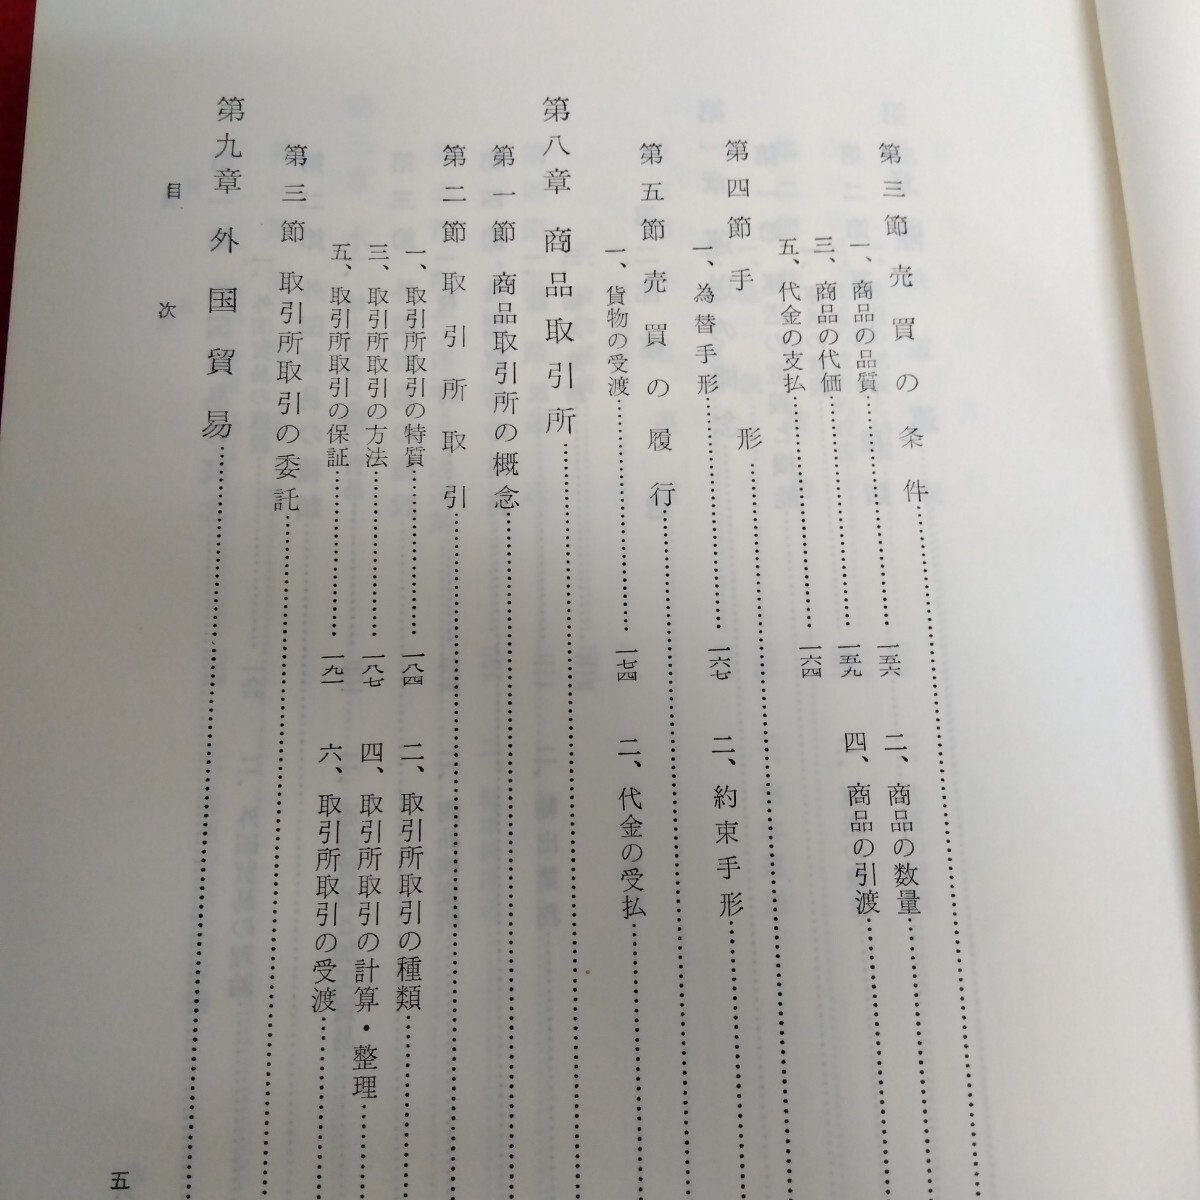 第三節 売買の条件
一、商品の品質 一五六 二、商品の数量
三、商品の代価 一五九 四、商品の引渡
五、代金の支払 一六四
第四節 手形
一、為替手形 一六七 二、約束手形
第五節 売買の履行
一、貨物の受渡 一七四 二、代金の受払
第八章 商品取引所
第一節 商品取引所の概念
第二節 取引所取引
一、取引所取引の特質 一八四 二、取引所取引の種類
三、取引所取引の方法 一八七 四、取引所取引の計算・整理
五、取引所取引の保証 一九一 六、取引所取引の受渡
第三節 取引所取引の委託
第九章 外国貿易
目次
五